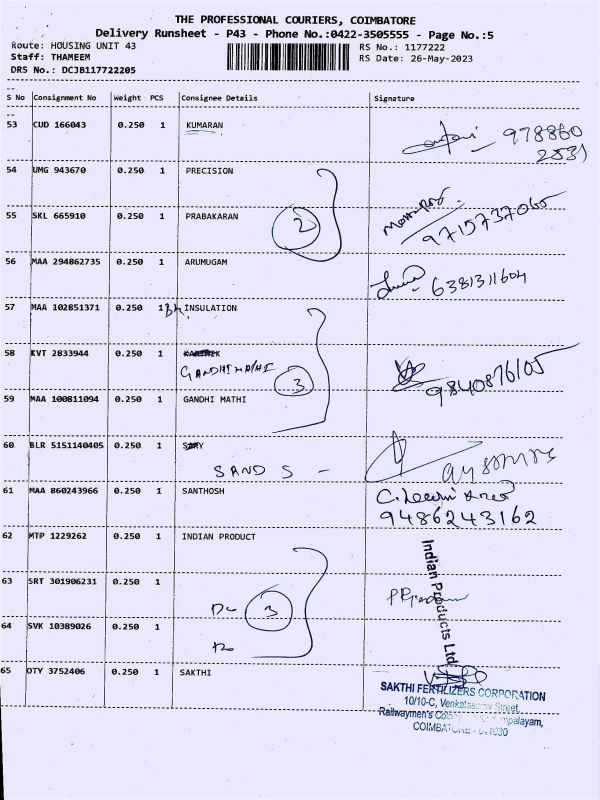 THE PROFESSIONAL COURIERS, COIMBATORE
Delivery Runsheet - P43 - Phone No.:0422-3505555 - Page No.:5
Route: HOUSING UNIT 43 RS No.: 1177222
Staff: THAMEEM RS Date: 26-May-2023
DRS No.: DCJB117722205
S No Consignment No Weight PCS Consignee Details Signature
53 CUD 166043 0.250 1 KUMARAN 978860
2531
54 UMG 943670 0.250 1 PRECISION
55 SKL 665910 0.250 1 PRABAKARAN 2 9715737065
56 MAA 294862735 0.250 1 ARUMUGAM 6381311604
57 MAA 102851371 0.250 1 INSULATION
58 KVT 2833944 0.250 1
GANDHIMATHI 3 9840876105
59 MAA 100811094 0.250 1 GANDHI MATHI
60 BLR 5151140405 0.250 1
SANDS -
61 MAA 860243966 0.250 1 SANTHOSH
9486243162
62 MTP 1229262 0.250 1 INDIAN PRODUCT
Indian Products Ltd
63 SRT 301906231 0.250 1
3
64 SVK 10389026 0.250 1
65 OTY 3752406 0.250 1 SAKTHI
SAKTHI FERTILIZERS CORPORATION
10/10-C, Street,
Railwaymen's
COIMBATORE